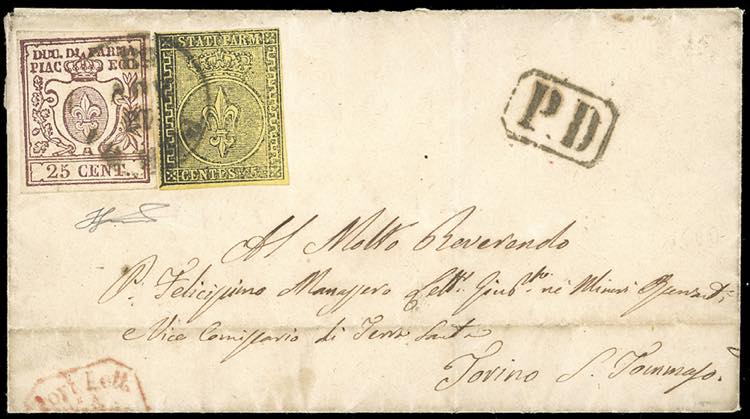 DUC. DI PARMA
PIAC. ECC.
25 CENT.
STATI PARM.
CENTES. 5
P.D
Al Molto Reverendo
P. Felicissimo Lett. Giub. ne Minori
e Vice Comissario di Terra Santa
Torino S. Tommaso.
Port Lett